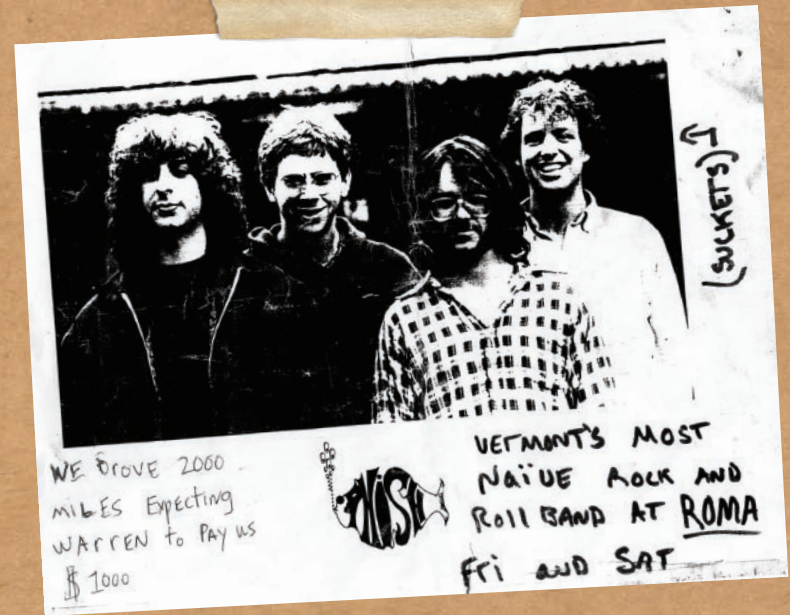 (SUCKETS)
WE DROVE 2000
MILES Expecting
WARREN to PAY us
$ 1000
PHISH
VERMONT'S MOST
NAÏVE ROCK AND
Roll BAND AT ROMA
Fri and SAT